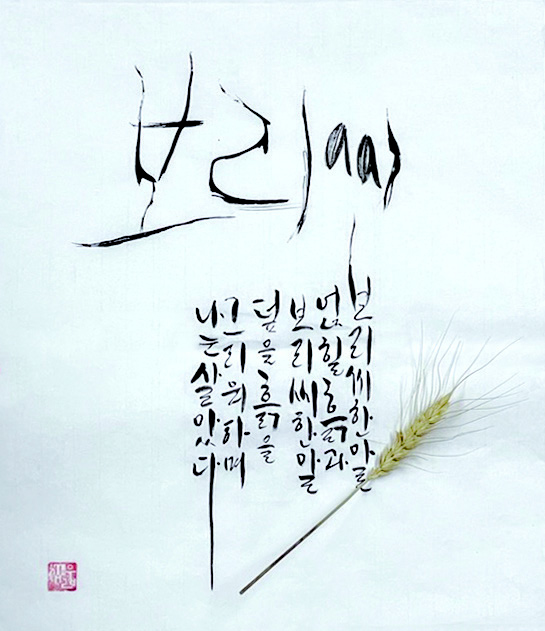 보리
보리씨한알
얹힐흙과
보리씨한알
덮을흙을
그리워하며
나는살았다